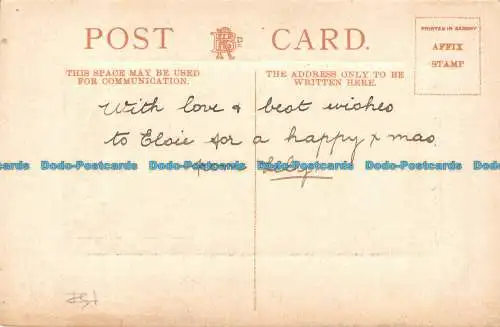 POST CARD.
PRINTED IN SAXONY
AFFIX
STAMP
THIS SPACE MAY BE USED
FOR COMMUNICATION.
THE ADDRESS ONLY TO BE
WRITTEN HERE.
With love & best wishes
to Elsie for a happy xmas
from
Dodo-Postcards Dodo-Postcards Dodo-Postcards Dodo-Postcards
Dodo-Postcards Dodo-Postcards Dodo-Postcards Dodo-Postcards